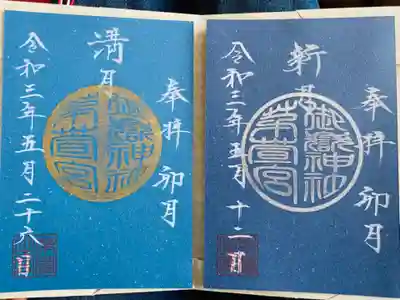 奉拝 卯月
新月
御嶽神社
茅萱宮
令和三年五月十二日
奉拝 卯月
満月
御嶽神社
茅萱宮
令和三年五月二十六日